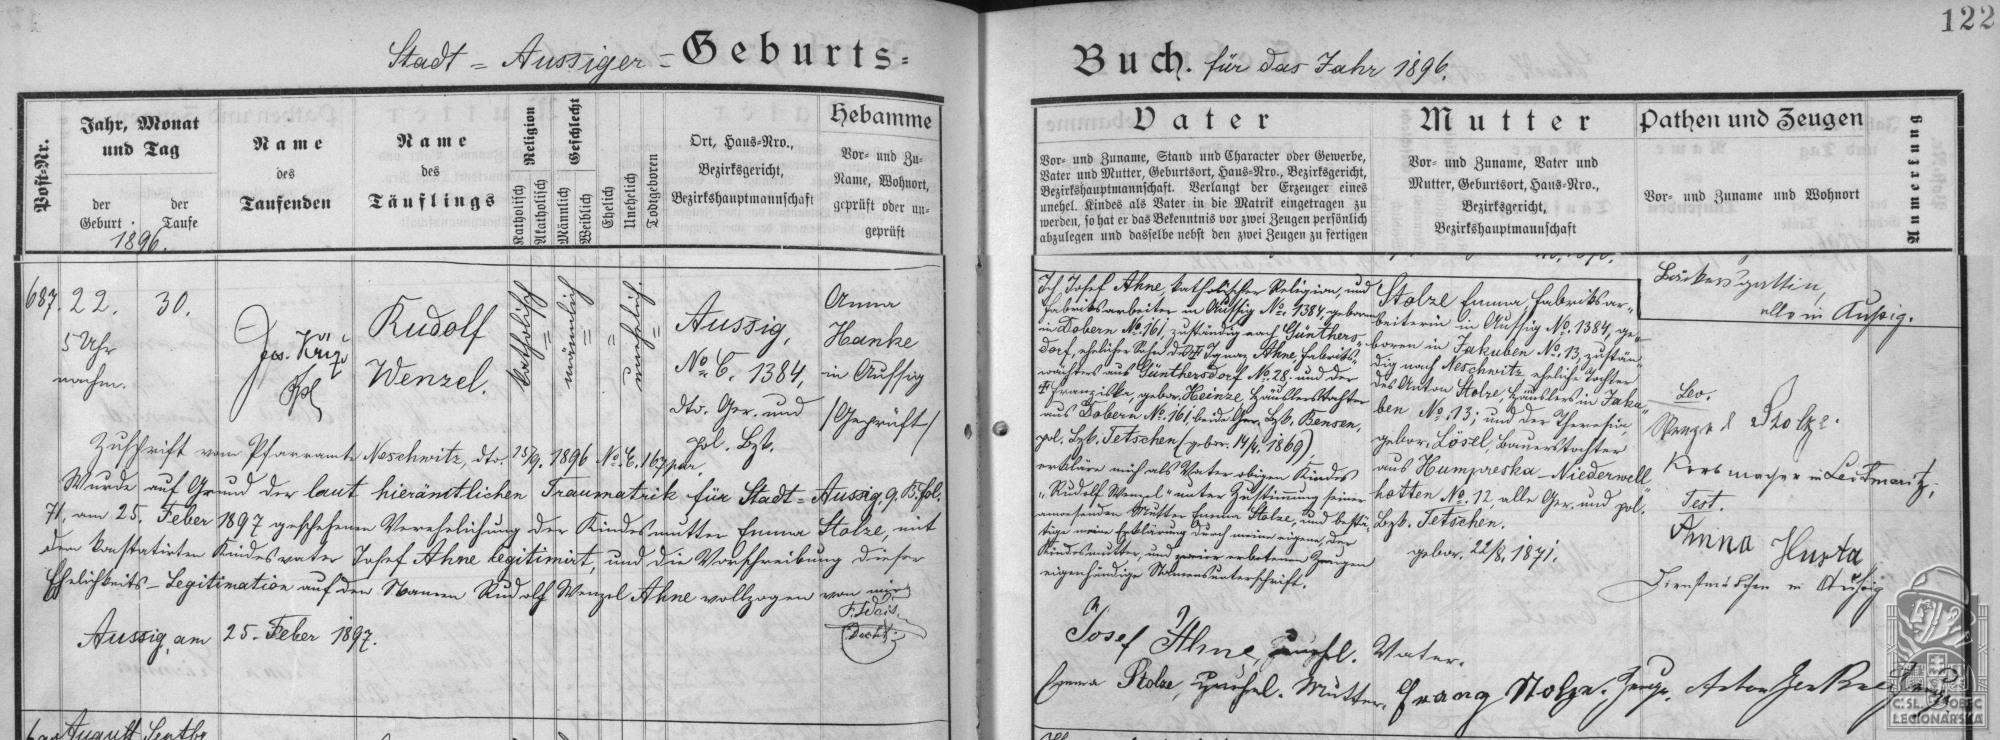 122
Stadt = Aussiger = Geburts =
Buch. für das Jahr 1896.
Post-Nr.
Jahr, Monat
und Tag
der
Geburt
der
Taufe
1896.
Name
des
Taufenden
Name
des
Täuflings
Religion
Katholisch
Akatholisch
Geschlecht
Männlich
Weiblich
Ehelich
Unehelich
Todigeboren
Ort, Haus-Nro.,
Bezirksgericht,
Bezirkshauptmannschaft
Hebamme
Vor- und Zu-
Name, Wohnort,
geprüft oder un-
geprüft
Vater
Vor- und Zuname, Stand und Character oder Gewerbe,
Vater und Mutter, Geburtsort, Haus-Nro., Bezirksgericht,
Bezirkshauptmannschaft. Verlangt der Erzeuger eines
unehel. Kindes als Vater in die Matrik eingetragen zu
werden, so hat er das Bekenntnis vor zwei Zeugen persönlich
abzulegen und dasselbe nebst den zwei Zeugen zu fertigen
Mutter
Vor- und Zuname, Vater und
Mutter, Geburtsort, Haus-Nro.,
Bezirksgericht,
Bezirkshauptmannschaft
Pathen und Zeugen
Vor- und Zuname und Wohnort
Anmerkung
687.
22.
5 Uhr
nachm.
30.
Jos. Kříž
Kpl
Rudolf
Wenzel.
katholisch
männlich
unehelich.
Aussig,
No C. 1384,
dto. Ger. und
pol. Bzk.
Anna
Hanke
in Aussig
/Geprüft/
Zuschrift vom Pfarramte Neschwitz, dto. 1896 No E. 167 par.
Wurde auf Grund der laut hierämtlichen Traumatrik für Stadt = Aussig, 9. B. fol.
71, am 25. Feber 1897 geschehenen Verehelichung der Kindesmutter Emma Stolze, mit
dem konstatirten Kindesvater Josef Ahne legitimirt, und die Vorschreibung dieser
Ehelichkeits-Legitimation auf den Namen Rudolf Wenzel Ahne vollzogen von mir
Aussig, am 25. Feber 1897.
Decht.
Ich Josef Ahne, katholischer Religion, und
Fabriksarbeiter in Aussig No. 1384, geboren
in Dobern No 161, zuständig nach Günthers-
dorf, ehelicher Sohn des Ignaz Ahne, Fabriks-
wächters aus Günthersdorf No 28. und der
Franziska, gebor. Heinze, Häuslerstochter
aus Dobern No 161, beide Ger. Bzk. Bensen,
pol. Bzk. Tetschen (gebor. 14/4. 1869),
erkläre mich als Vater obigen Kindes
"Rudolf Wenzel" unter Zustimmung seiner
anwesenden Mutter Emma Stolze, und bestä-
tige meine Erklärung durch meine eigene, der
Kindesmutter, und zweier erbetenen Zeugen
eigenhändige Namensunterschrift.
Stolze Emma, Fabriksar-
beiterin in Aussig No. 1384, ge-
boren in Jakuben No. 13, zustän-
dig nach Neschwitz, eheliche Tochter
des Anton Stolze, Häuslers in Jaku-
ben No. 13; und der Theresia,
gebor. Lösel, Bauerstochter
aus Humpreska-Niederwell-
hotten No. 12, alle Ger. und pol.
Bzk. Tetschen.
gebor. 22/8. 1871.
Bäckersgattin,
alle in Aussig.
Lev.
Wenzel Stolze.
Korbmacher in Leitmeritz,
Test.
Anna Husta
Dienstmädchen in Aussig
Josef Ahne, unehl. Vater.
Emma Stolze, unehel. Mutter. Franz Stolze, Zeuge.
August Septbr
ČSL. OBEC
LEGIONÁŘSKÁ